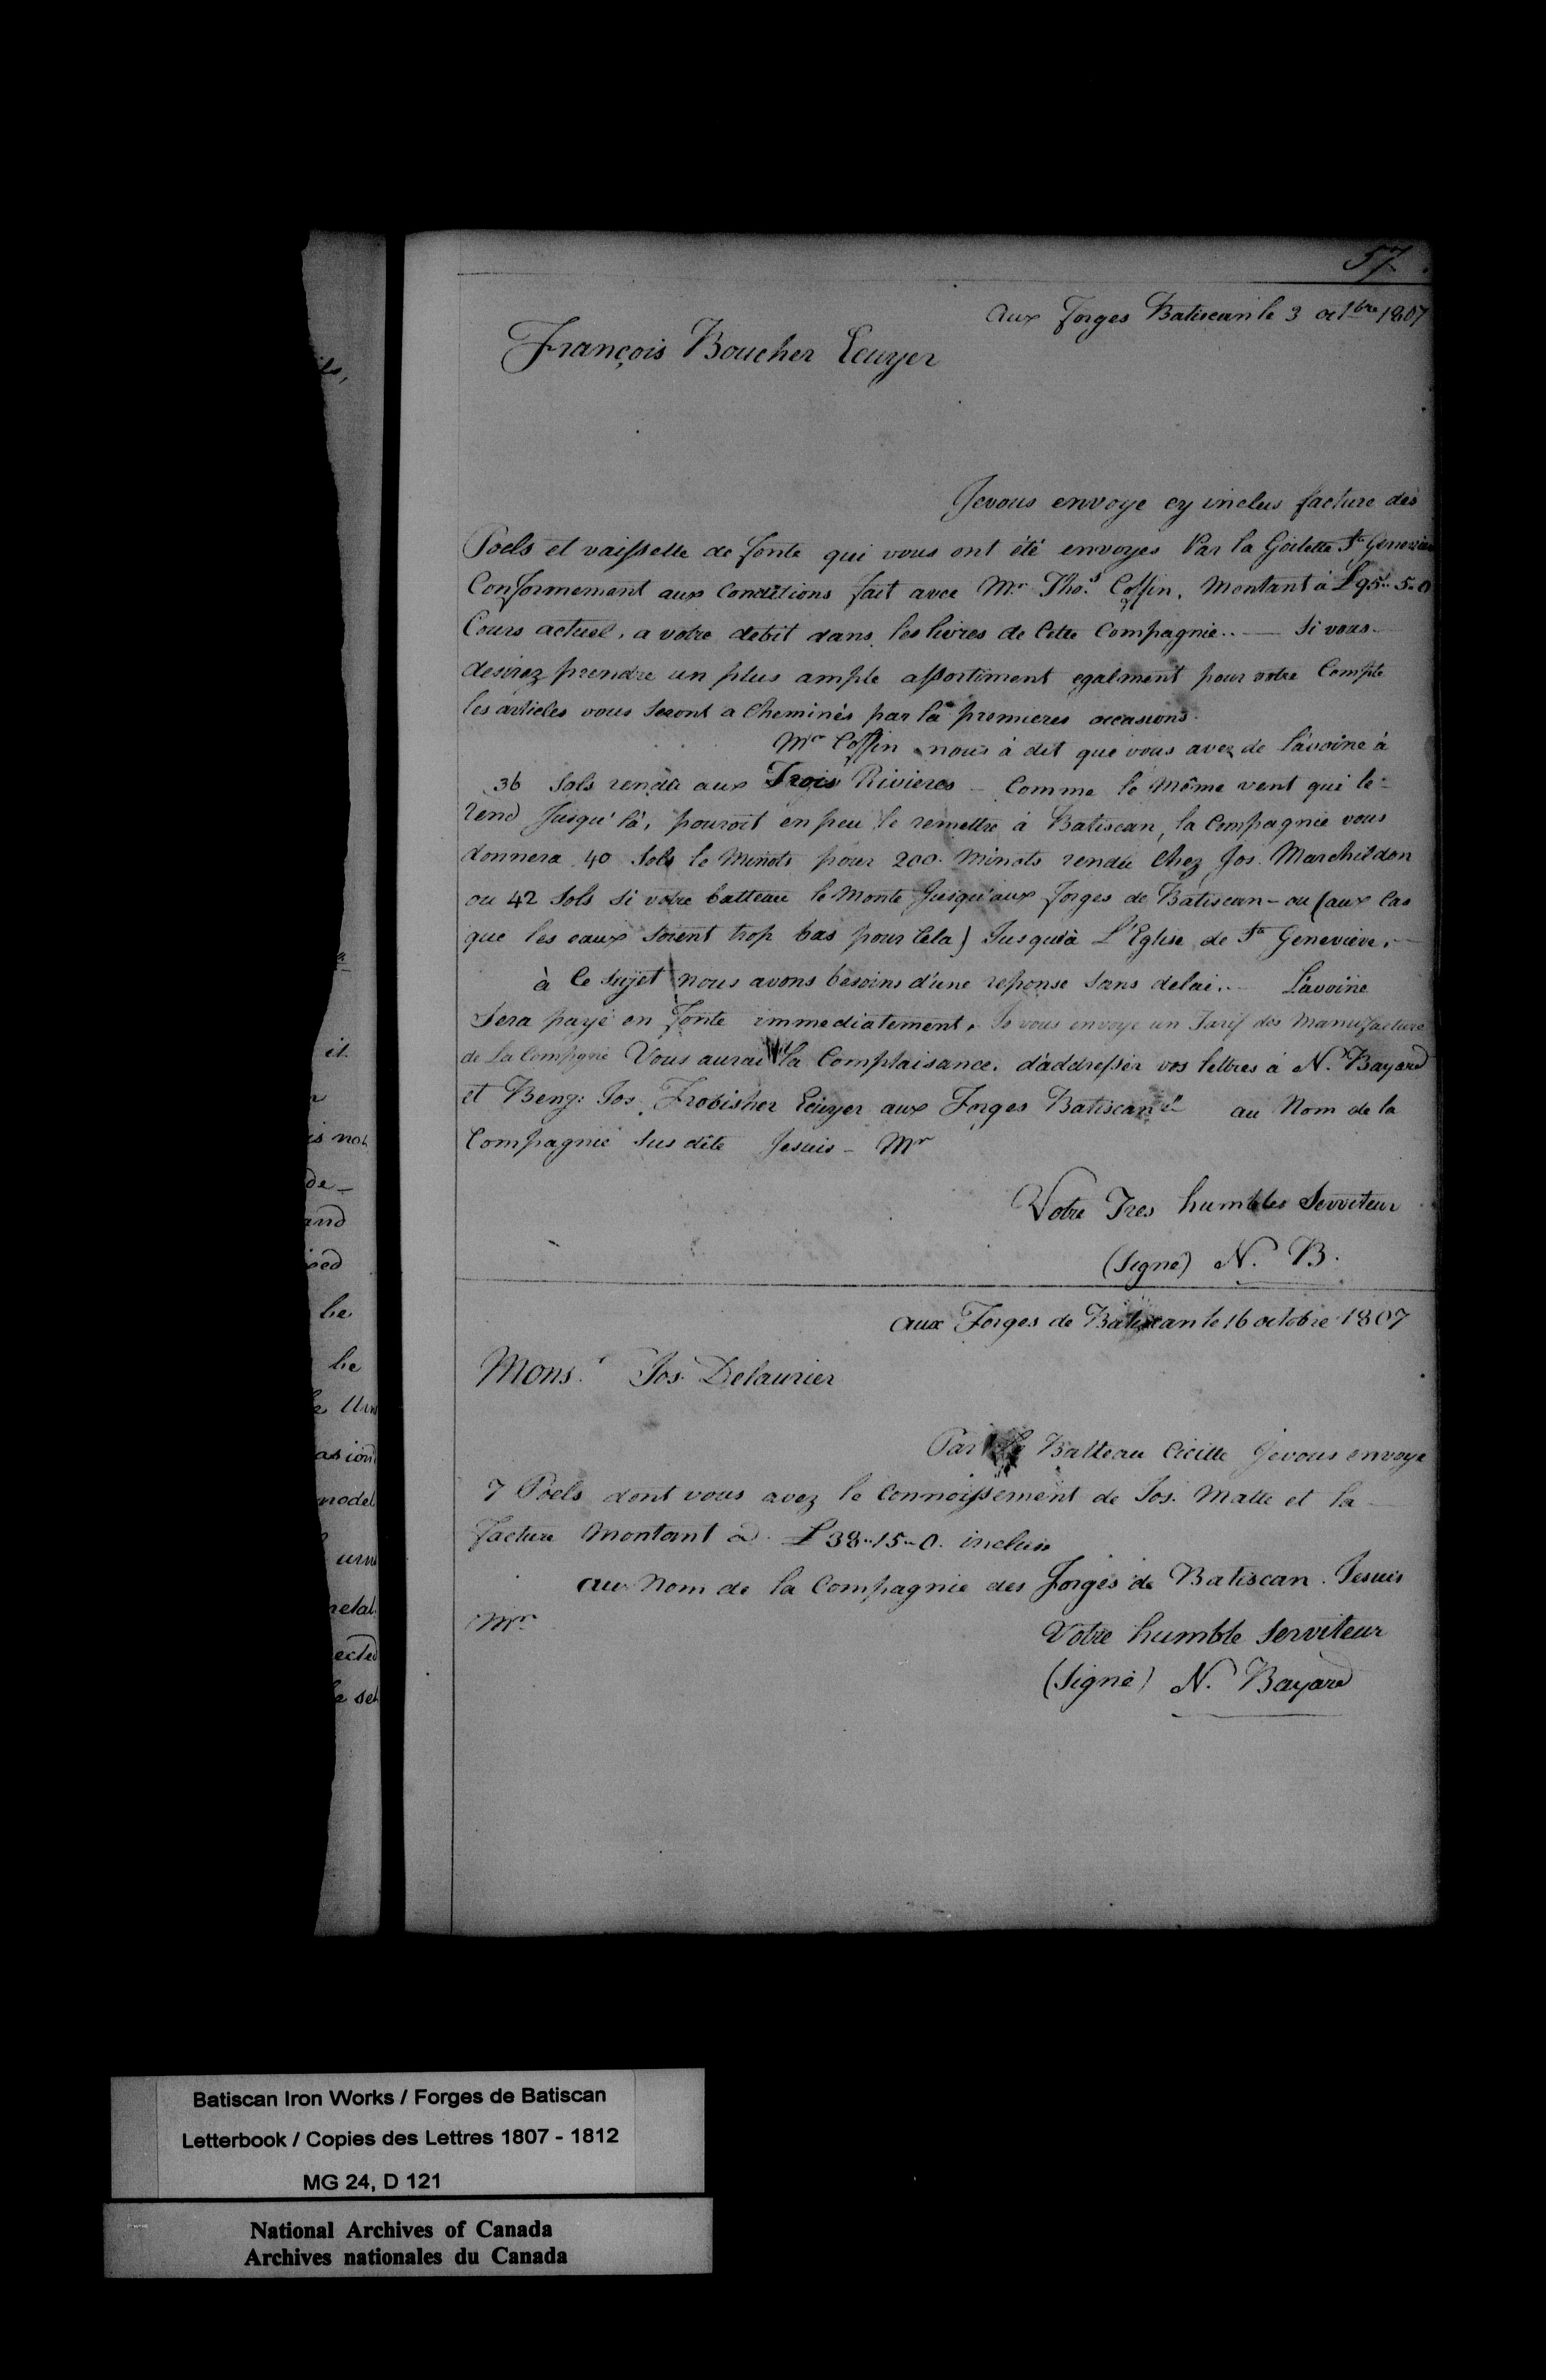 57
aux Forges Batiscan le 3 octbre 1807
François Boucher Ecuyer
Je vous envoye cy inclus facture des
Poels et vaisselle de fonte qui vous ont été envoyes Par la Goelette Ste Genevieve
Conformement aux Conditions fait avec Mr. Thos. Coffin, Montant à £95..5..0
Cours actuel, a votre debit dans les livres de Cette Compagnie.. — Si vous
desirez prendre un plus ample assortiment egalment pour votre Compte
les articles vous Seront a Cheminés par la premieres occasions.
Mr Coffin nous à dit que vous avez de L'avoine à
36 Sols rendu aux Trois Rivieres — Comme le même vent qui le
rend Jusqu'là, pouroit en peu le remettre à Batiscan, la Compagnie vous
donnera 40 Sols le Minots pour 200 Minots rendu Chez Jos. Marchildon
ou 42 Sols Si votre batteau le Monte Jusqu'aux Forges de Batiscan — ou (aux Cas
que les eaux Soient trop bas pour Cela) Jusqu'à L'Eglise de Ste Geneviève. —
à Ce Sujet nous avons besoins d'une reponse Sans delai.. — L'avoine
Sera payé en fonte immediatement. Je vous envoye un Tarif des Manufacture
de La Compagnie Vous aurai la Complaisance, d'addresser vos lettres à N. Bayard
et Benj: Jos. Frobisher Ecuyer aux Forges Batiscan au Nom de la
Compagnie Sus dite Je suis — Mr
Votre Tres humbles Serviteur
(Signé) N. B.
aux Forges de Batiscan le 16 octobre 1807
Monsr. Jos. Delaurier
Par Le Batteau Cicille Je vous envoye
7 Poels dont vous avez le Connoissement de Jos. Matte et la
facture Montant à £38..15..0. inclus
au Nom de la Compagnie des Forges de Batiscan. Je suis
Mr.
Votre humble Serviteur
(Signé) N. Bayard
it
is not
de
and
be
be
model
ected
Batiscan Iron Works / Forges de Batiscan
Letterbook / Copies des Lettres 1807 - 1812
MG 24, D 121
National Archives of Canada
Archives nationales du Canada